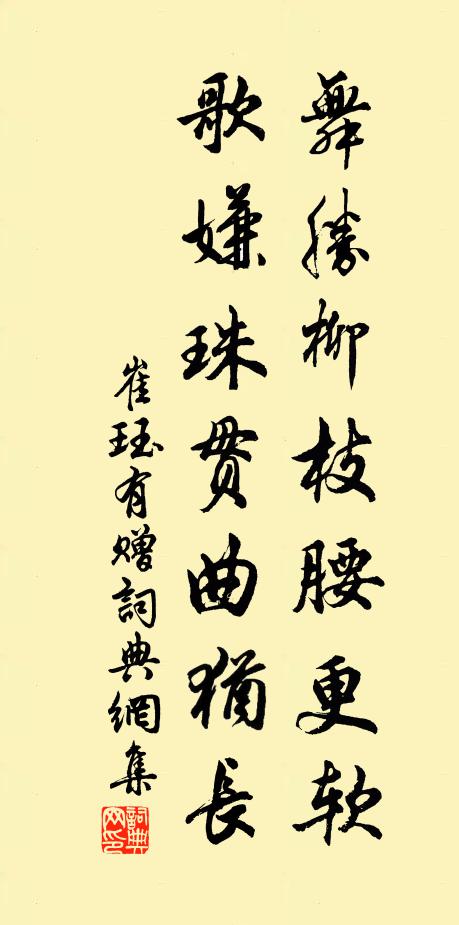 舞勝柳枝腰更軟
歌嫌珠貫曲猶長
崔珏有贈詞典網集
詞典网印